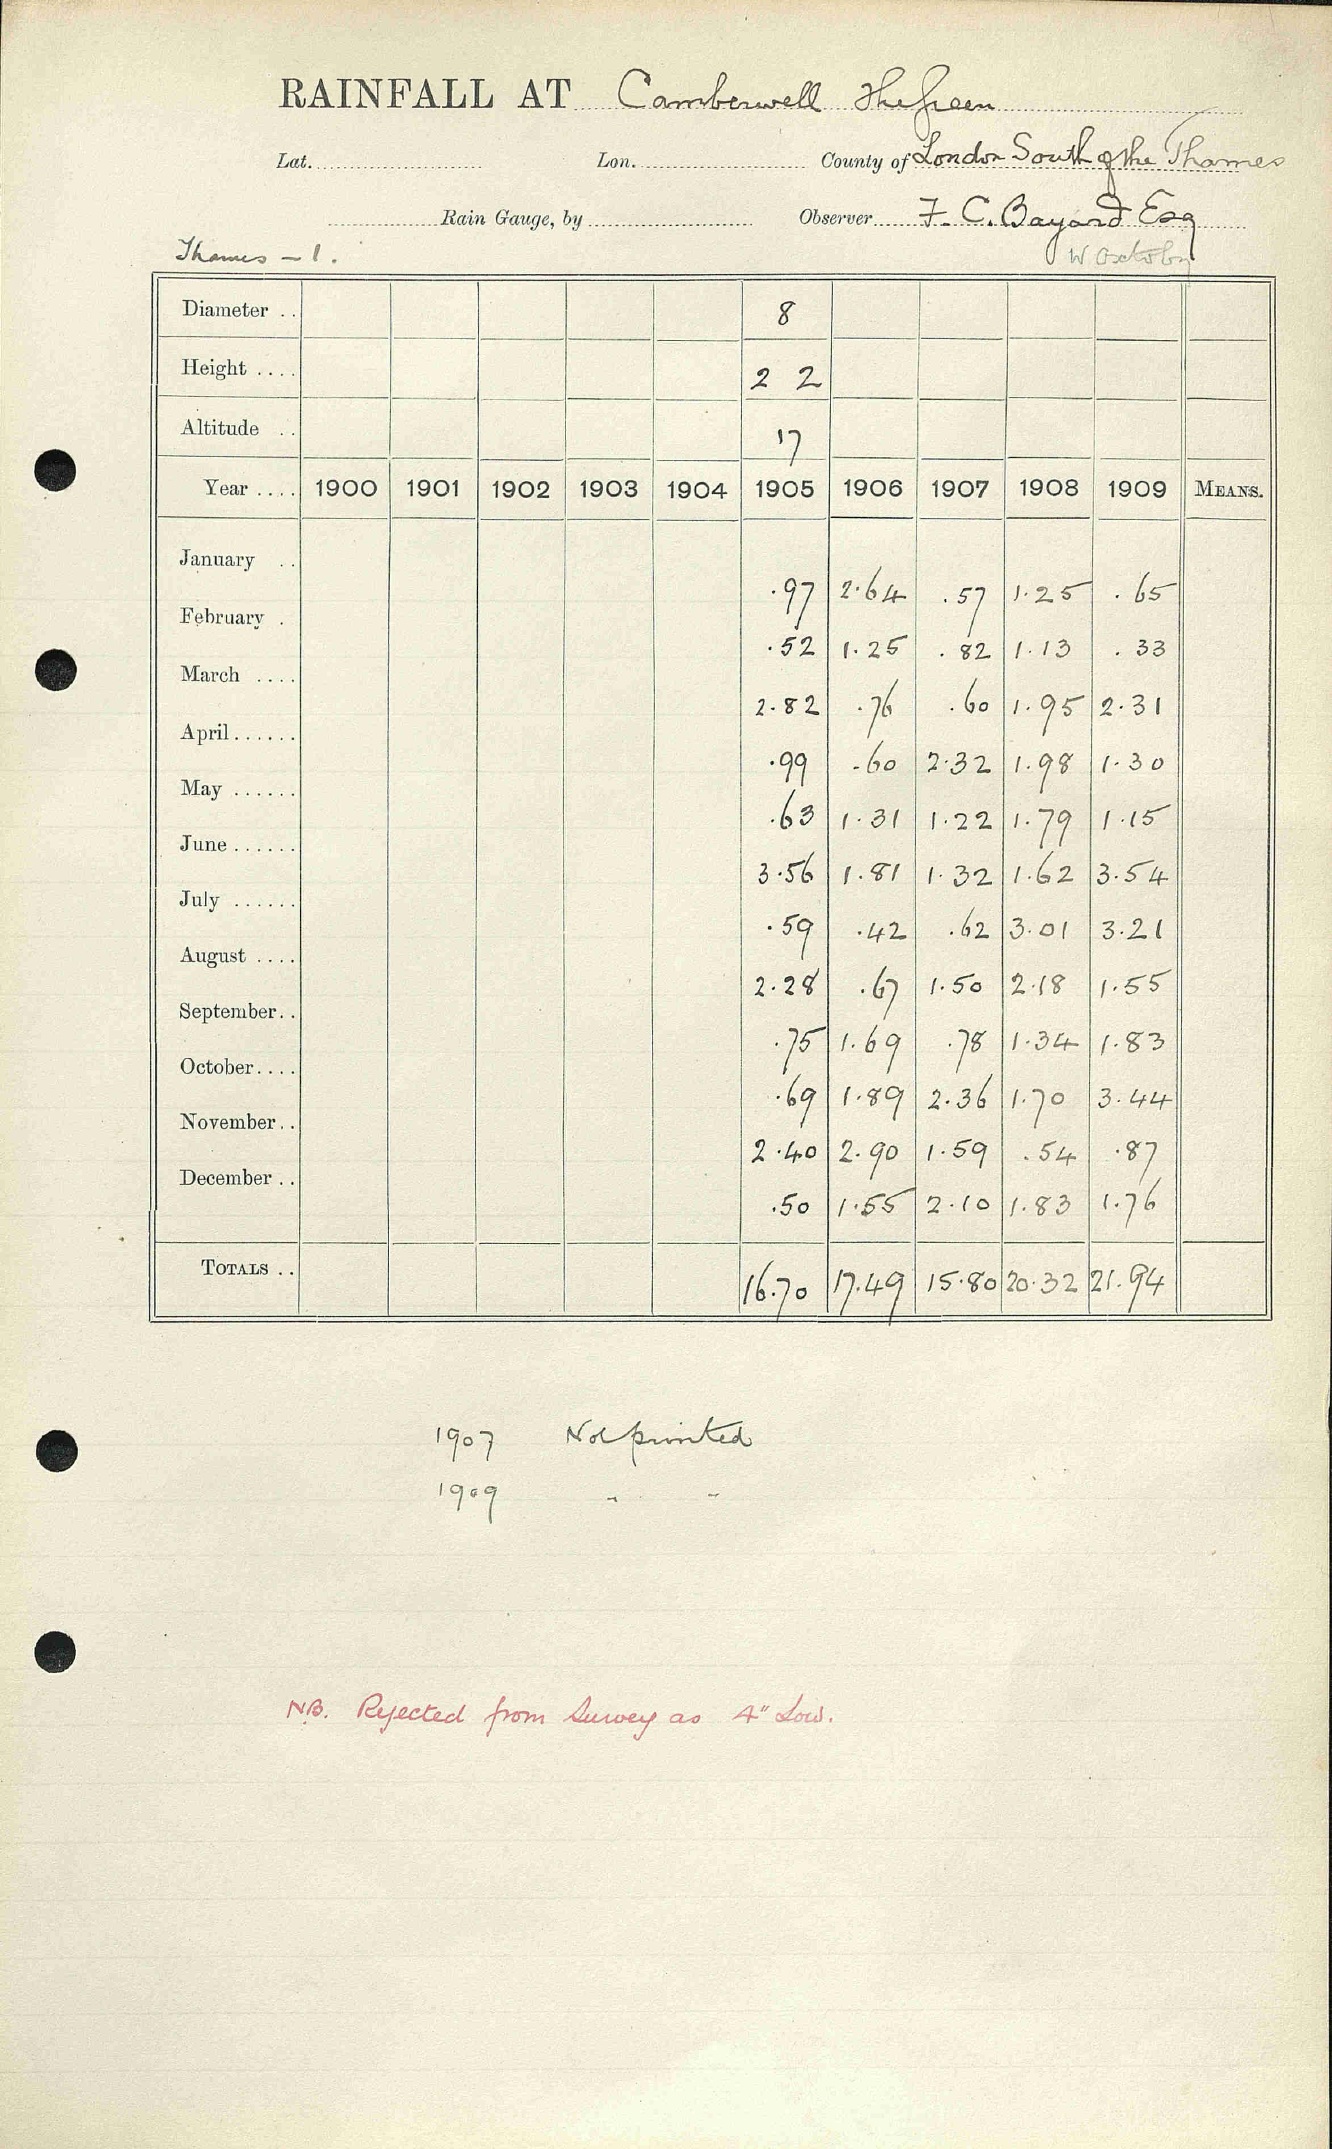 RAINFALL AT Camberwell The Green
Lat. Lon. County of London South of the Thames
Rain Gauge, by Observer F. C. Bayard Esq
Thames - 1. W Oxtoby
Diameter .. 8
Height .... 2 2
Altitude .. 17
Year .... 1900 1901 1902 1903 1904 1905 1906 1907 1908 1909 MEANS.
January .. .97 2.64 .57 1.25 .65
February . .52 1.25 .82 1.13 .33
March .... 2.82 .76 .60 1.95 2.31
April...... .99 .60 2.32 1.98 1.30
May ...... .63 1.31 1.22 1.79 1.15
June...... 3.56 1.81 1.32 1.62 3.54
July ...... .59 .42 .62 3.01 3.21
August .... 2.28 .67 1.50 2.18 1.55
September.. .75 1.69 .78 1.34 1.83
October.... .69 1.89 2.36 1.70 3.44
November.. 2.40 2.90 1.59 .54 .87
December.. .50 1.55 2.10 1.83 1.76
TOTALS .. 16.70 17.49 15.80 20.32 21.94
1907 Not printed
1909 " "
NB. Rejected from Survey as 4" Low.